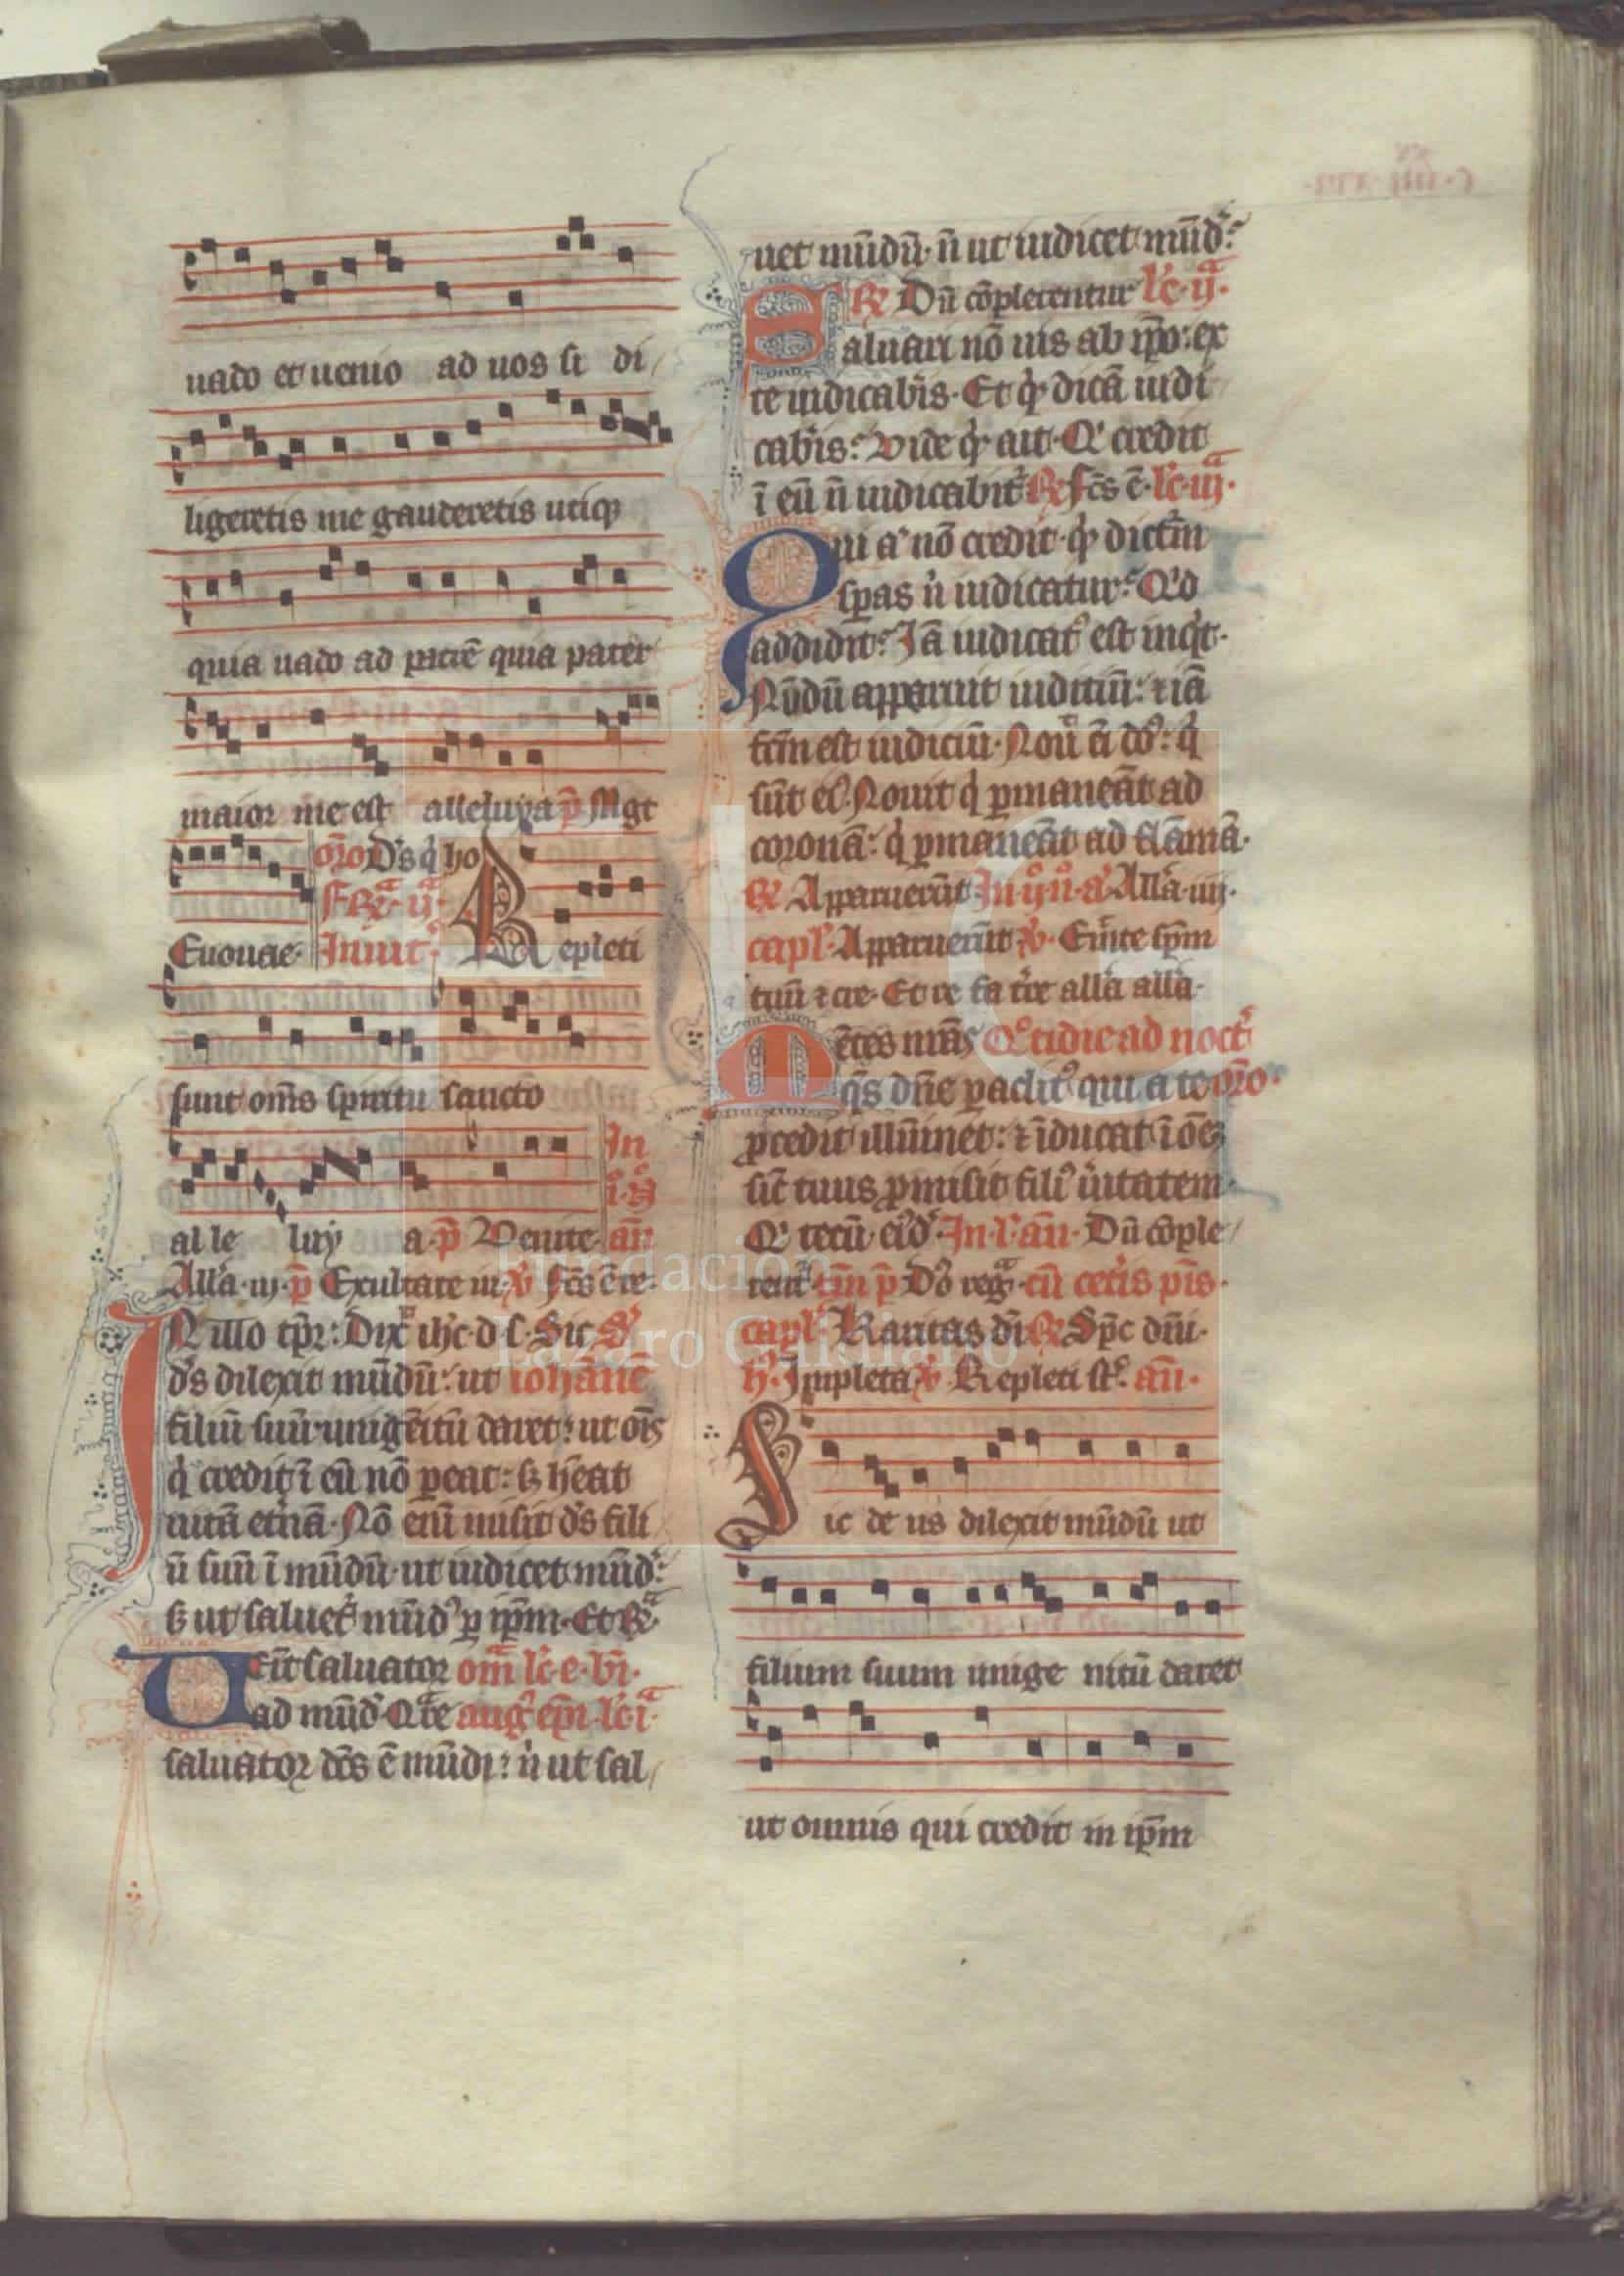 uado et uenio ad uos si di/
ligeretis me gauderetis utiqȝ
quia uado ad patrē quia pater
maior me est alleluya p̄ Mgt
oro D's q̇ ho
fr̄. ij.ª
Euouae. Inuit. Repleti
sunt om̄s spiritu sancto
In
i. n̊
al le luy a. p̄ Venite. an̄
All'a. iij. p̄ Exultate iii. v̄ Sc̄s ē re.
IN illo tp̄r: Dix̄ ih̄c. d. s. Sic S'
d's dilexit mūdū: ut iohāne
filiū suū unigēitū daret: ut oīs
q̇ credit ī eū nō peat: sȝ h̄eat
uitā et'nā. Nō enī misit d's fili
ū suū ī mūdū ut iudicet mūd'.
sȝ ut saluet' mūd' p ip̄m. Et R̄.ª
Ueīt saluator om̄ lc̄. e. bī.
ad mūd'. Q're aug' ep̄i. lc̄. iª
saluator dc̄s ē mūdi: n̄ ut sal/
uet mūdū. n̄ ut iudicet mūd'.
R̄ Dū cōplerentur lc̄. ij.ª
Saluari nō uis ab ip̄o: ex
te iudicab'is. Et q̇ dicā iudi
cab'is: Vide q̇ ait. Q' credit
ī eū n̄ iudicabit' R̄ Sc̄s ē. lc̄. iij.ª
Qui a' nō credit. q̇ dictm̄
spas n̄ iudicatur: Q'd
addidit: Jā iudicat' est inq't.
Nōdū apparuit iuditiū: ⁊ iā
fcm̄ est iudiciū. Nou' ēi do': q̇
sūt ei'. Nouit q̇ pmaneāt ad
coronā: q̇ pmaneāt ad flāmā.
R̄ Apparuerūt In ij. n̊. a' All'a. iiij.
capl'. Apparuerūt v̄. Emīte sp̄m
tuū ⁊ cre. Et re fa t're all'a all'a.
Mētes nr̄as Q'tidie ad noct'
q̄s dn̄e paclit' qui a te oro.
pcedit illūinet: ⁊ īducat ī ōeȝ
sic̄ tuus pmisit fili' ūitatem.
Q' tecū. ei'd'. In. l'. an̄. Dū cōple/
rent' tm̄ p̄ Do' reg.ª cū cet'is p̄is.
capl'. Karitas dī R̄ Sp̄c dn̄i.
h'. Impleta v̄ Repleti st'. an̄.
Sic de us dilexit mūdū ut
filium suum unige nitū daret
ut omnis qui credit in ip̄m
Fundación
Lázaro Galdiano